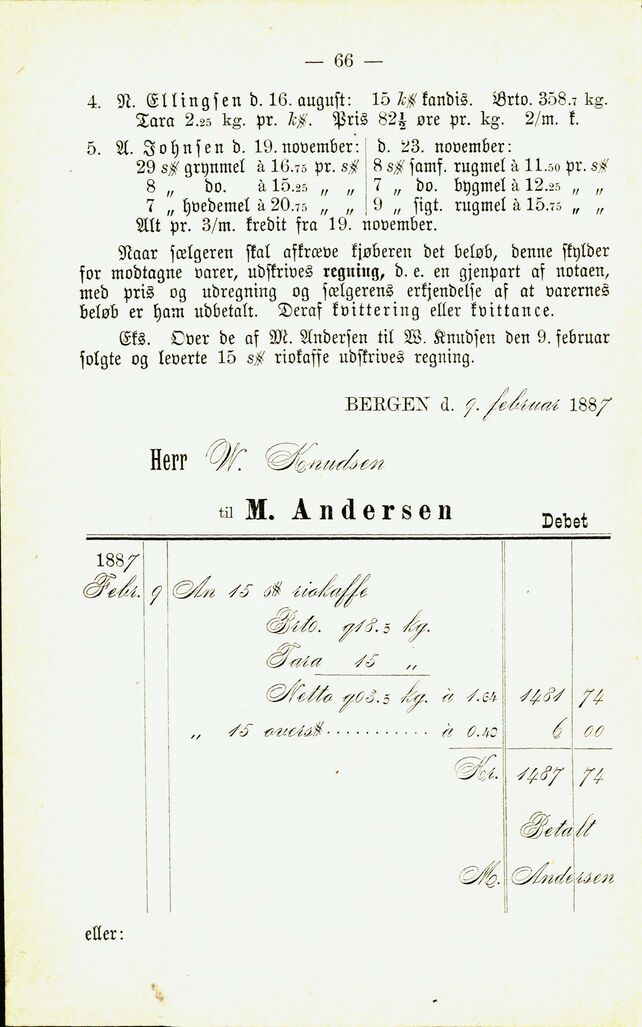 — 66 —
4. N. Ellingsen d. 16. august: 15 k⧧ kandis. Brto. 358.7 kg.
Tara 2.25 kg. pr. k⧧. Pris 82½ øre pr. kg. 2/m. k.
5. A. Johnsen d. 19. november: | d. 23. november:
29 s⧧ grynmel à 16.75 pr. s⧧ | 8 s⧧ samf. rugmel à 11.50 pr. s⧧
8 „ do. à 15.25 „ „ | 7 „ do. bygmel à 12.25 „ „
7 „ hvedemel à 20.75 „ „ | 9 „ sigt. rugmel à 15.75 „ „
Alt pr. 3/m. kredit fra 19. november.
Naar sælgeren skal afkræve kjøberen det beløb, denne skylder
for modtagne varer, udskrives regning, d. e. en gjenpart af notaen,
med pris og udregning og sælgerens erkjendelse af at varernes
beløb er ham udbetalt. Deraf kvittering eller kvittance.
Eks. Over de af M. Andersen til W. Knudsen den 9. februar
solgte og leverte 15 s⧧ riokaffe udskrives regning.
BERGEN d. 9. februar 1887
Herr W. Knudsen
til M. Andersen
Debet
1887
Febr. 9 An 15 s⧧ riokaffe
Brto. 918.5 kg.
Tara 15 „
Netto 903.5 kg. à 1.64 1481 74
„ 15 overs⧧ . . . . . . . . . . . à 0.40 6 00
Kr. 1487 74
Betalt
M. Andersen
eller: